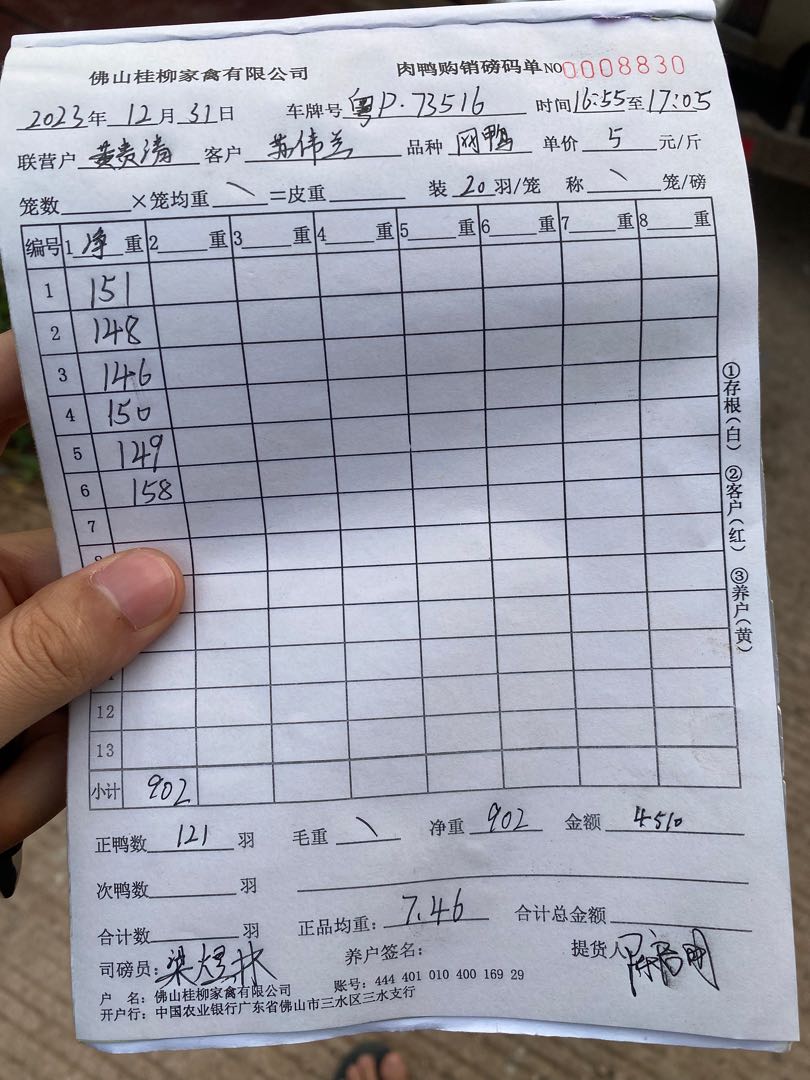 佛山桂柳家禽有限公司 肉鸭购销磅码单NO0008830
2023年12月31日 车牌号粤P·73516 时间16:55至17:05
联营户黄贵清 客户苏伟兰 品种网鸭 单价5元/斤
笼数 ×笼均重\=皮重 装20羽/笼 称\笼/磅
编号 1净重 2 重 3 重 4 重 5 重 6 重 7 重 8 重
1 151
2 148
3 146
4 150
5 149
6 158
7
12
13
小计 902
正鸭数121羽 毛重\ 净重902 金额4510
次鸭数 羽
合计数 羽 正品均重:7.46 合计总金额
司磅员: 养户签名: 提货人
户 名:佛山桂柳家禽有限公司 账号:444 401 010 400 169 29
开户行:中国农业银行广东省佛山市三水区三水支行
①存根(白) ②客户(红) ③养户(黄)